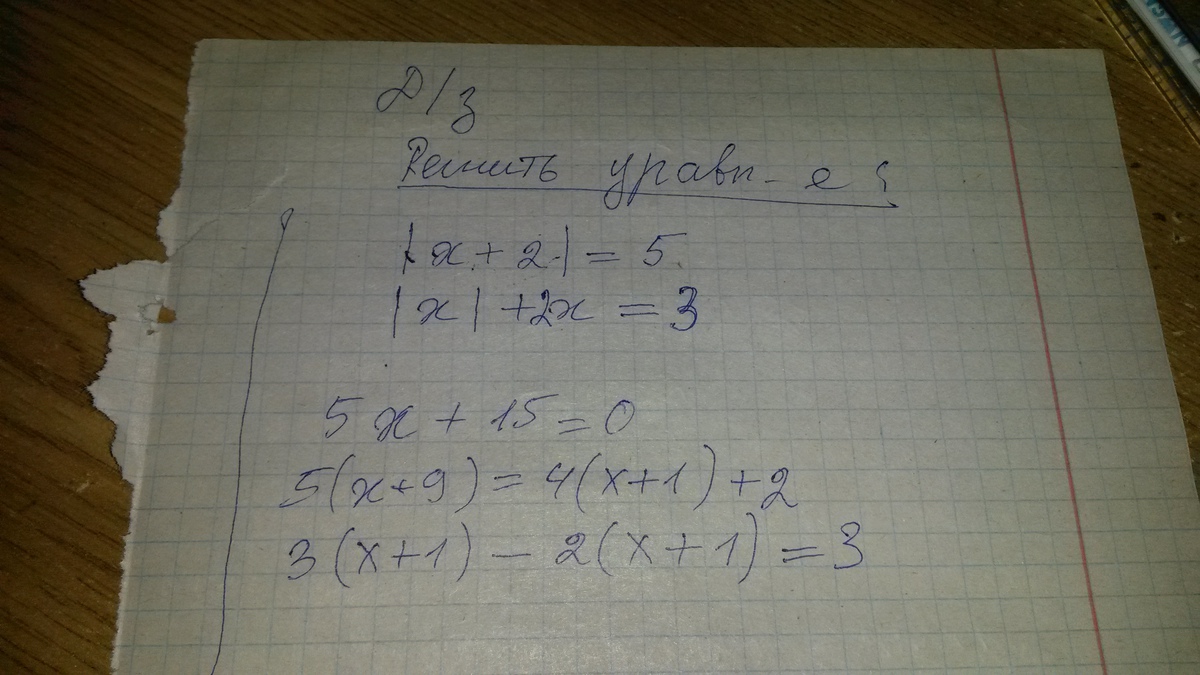 Д/з
Решить уравн-е:
|x + 2| = 5
|x| + 2x = 3
5x + 15 = 0
5(x+9) = 4(x+1) + 2
3(x+1) - 2(x+1) = 3